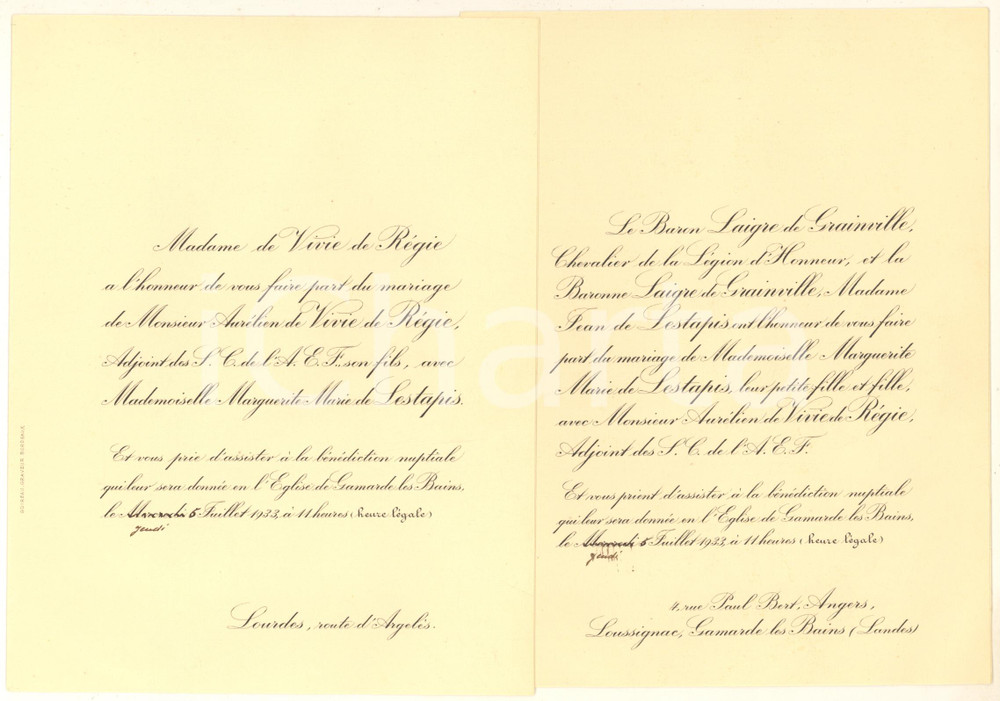 Madame de Vivie de Régie
a l'honneur de vous faire part du mariage
de Monsieur Aurélien de Vivie de Régie,
Adjoint des S. C. de l'A. E. F. son fils, avec
Mademoiselle Marguerite Marie de Lestapis.
Et vous prie d'assister à la bénédiction nuptiale
qui leur sera donnée en l'Eglise de Gamarde les Bains,
le Mercredi 5 Juillet 1933, à 11 heures (heure légale)
jeudi
Lourdes, route d'Argelès.
Le Baron Laigre de Grainville,
Chevalier de la Légion d'Honneur, et la
Baronne Laigre de Grainville, Madame
Jean de Lestapis ont l'honneur de vous faire
part du mariage de Mademoiselle Marguerite
Marie de Lestapis, leur petite fille et fille,
avec Monsieur Aurélien de Vivie de Régie,
Adjoint des S. C. de l'A. E. F.
Et vous prient d'assister à la bénédiction nuptiale
qui leur sera donnée en l'Eglise de Gamarde les Bains,
le Mercredi 5 Juillet 1933, à 11 heures (heure légale)
jeudi
4, rue Paul Bert, Angers,
Loussignac, Gamarde les Bains (Landes)